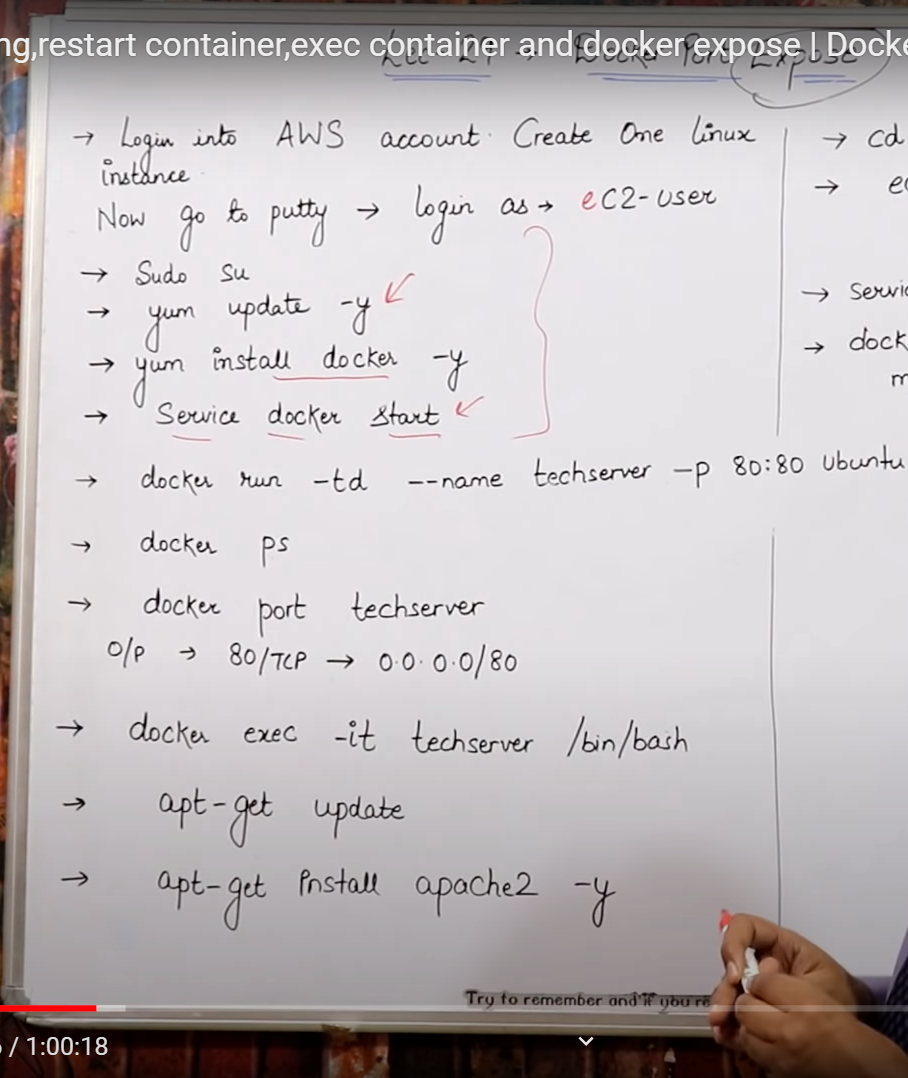 ng,restart container,exec container and docker expose | Docke
Lec-29 → Docker Port Expose
→ Login into AWS account. Create One linux
instance.
Now go to putty → login as → eC2-user
→ Sudo su
→ yum update -y
→ yum install docker -y
→ Service docker start
→ docker run -td --name techserver -p 80:80 ubuntu
→ docker ps
→ docker port techserver
O/P → 80/TCP → 0.0.0.0/80
→ docker exec -it techserver /bin/bash
→ apt-get update
→ apt-get install apache2 -y
→ cd
→ e
→ Servic
→ dock
m
Try to remember and if you re
/ 1:00:18